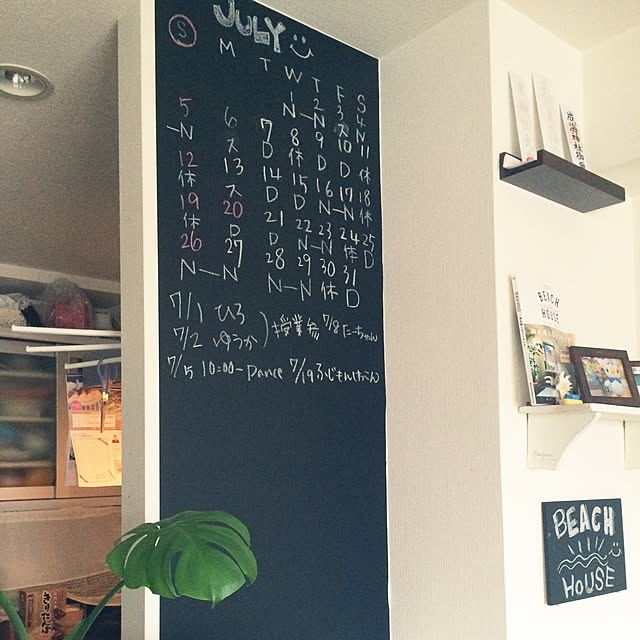 JULY
S M T W T F S
1 2 3 4
N—N ス N
5 6 7 8 9 10 11
—N ス D 休 D D 休
12 13 14 15 16 17 18
休 ス D D N—N 休
19 20 21 22 23 24 25
休 D D N—N 休 D
26 27 28 29 30 31
N—N N—N 休 D
7/1 ひろ
7/2 ゆうか ) 授業参 7/8 にーちゃん
7/5 10:00- Dance 7/19
BEACH
HOUSE
BEACH
HOUSE